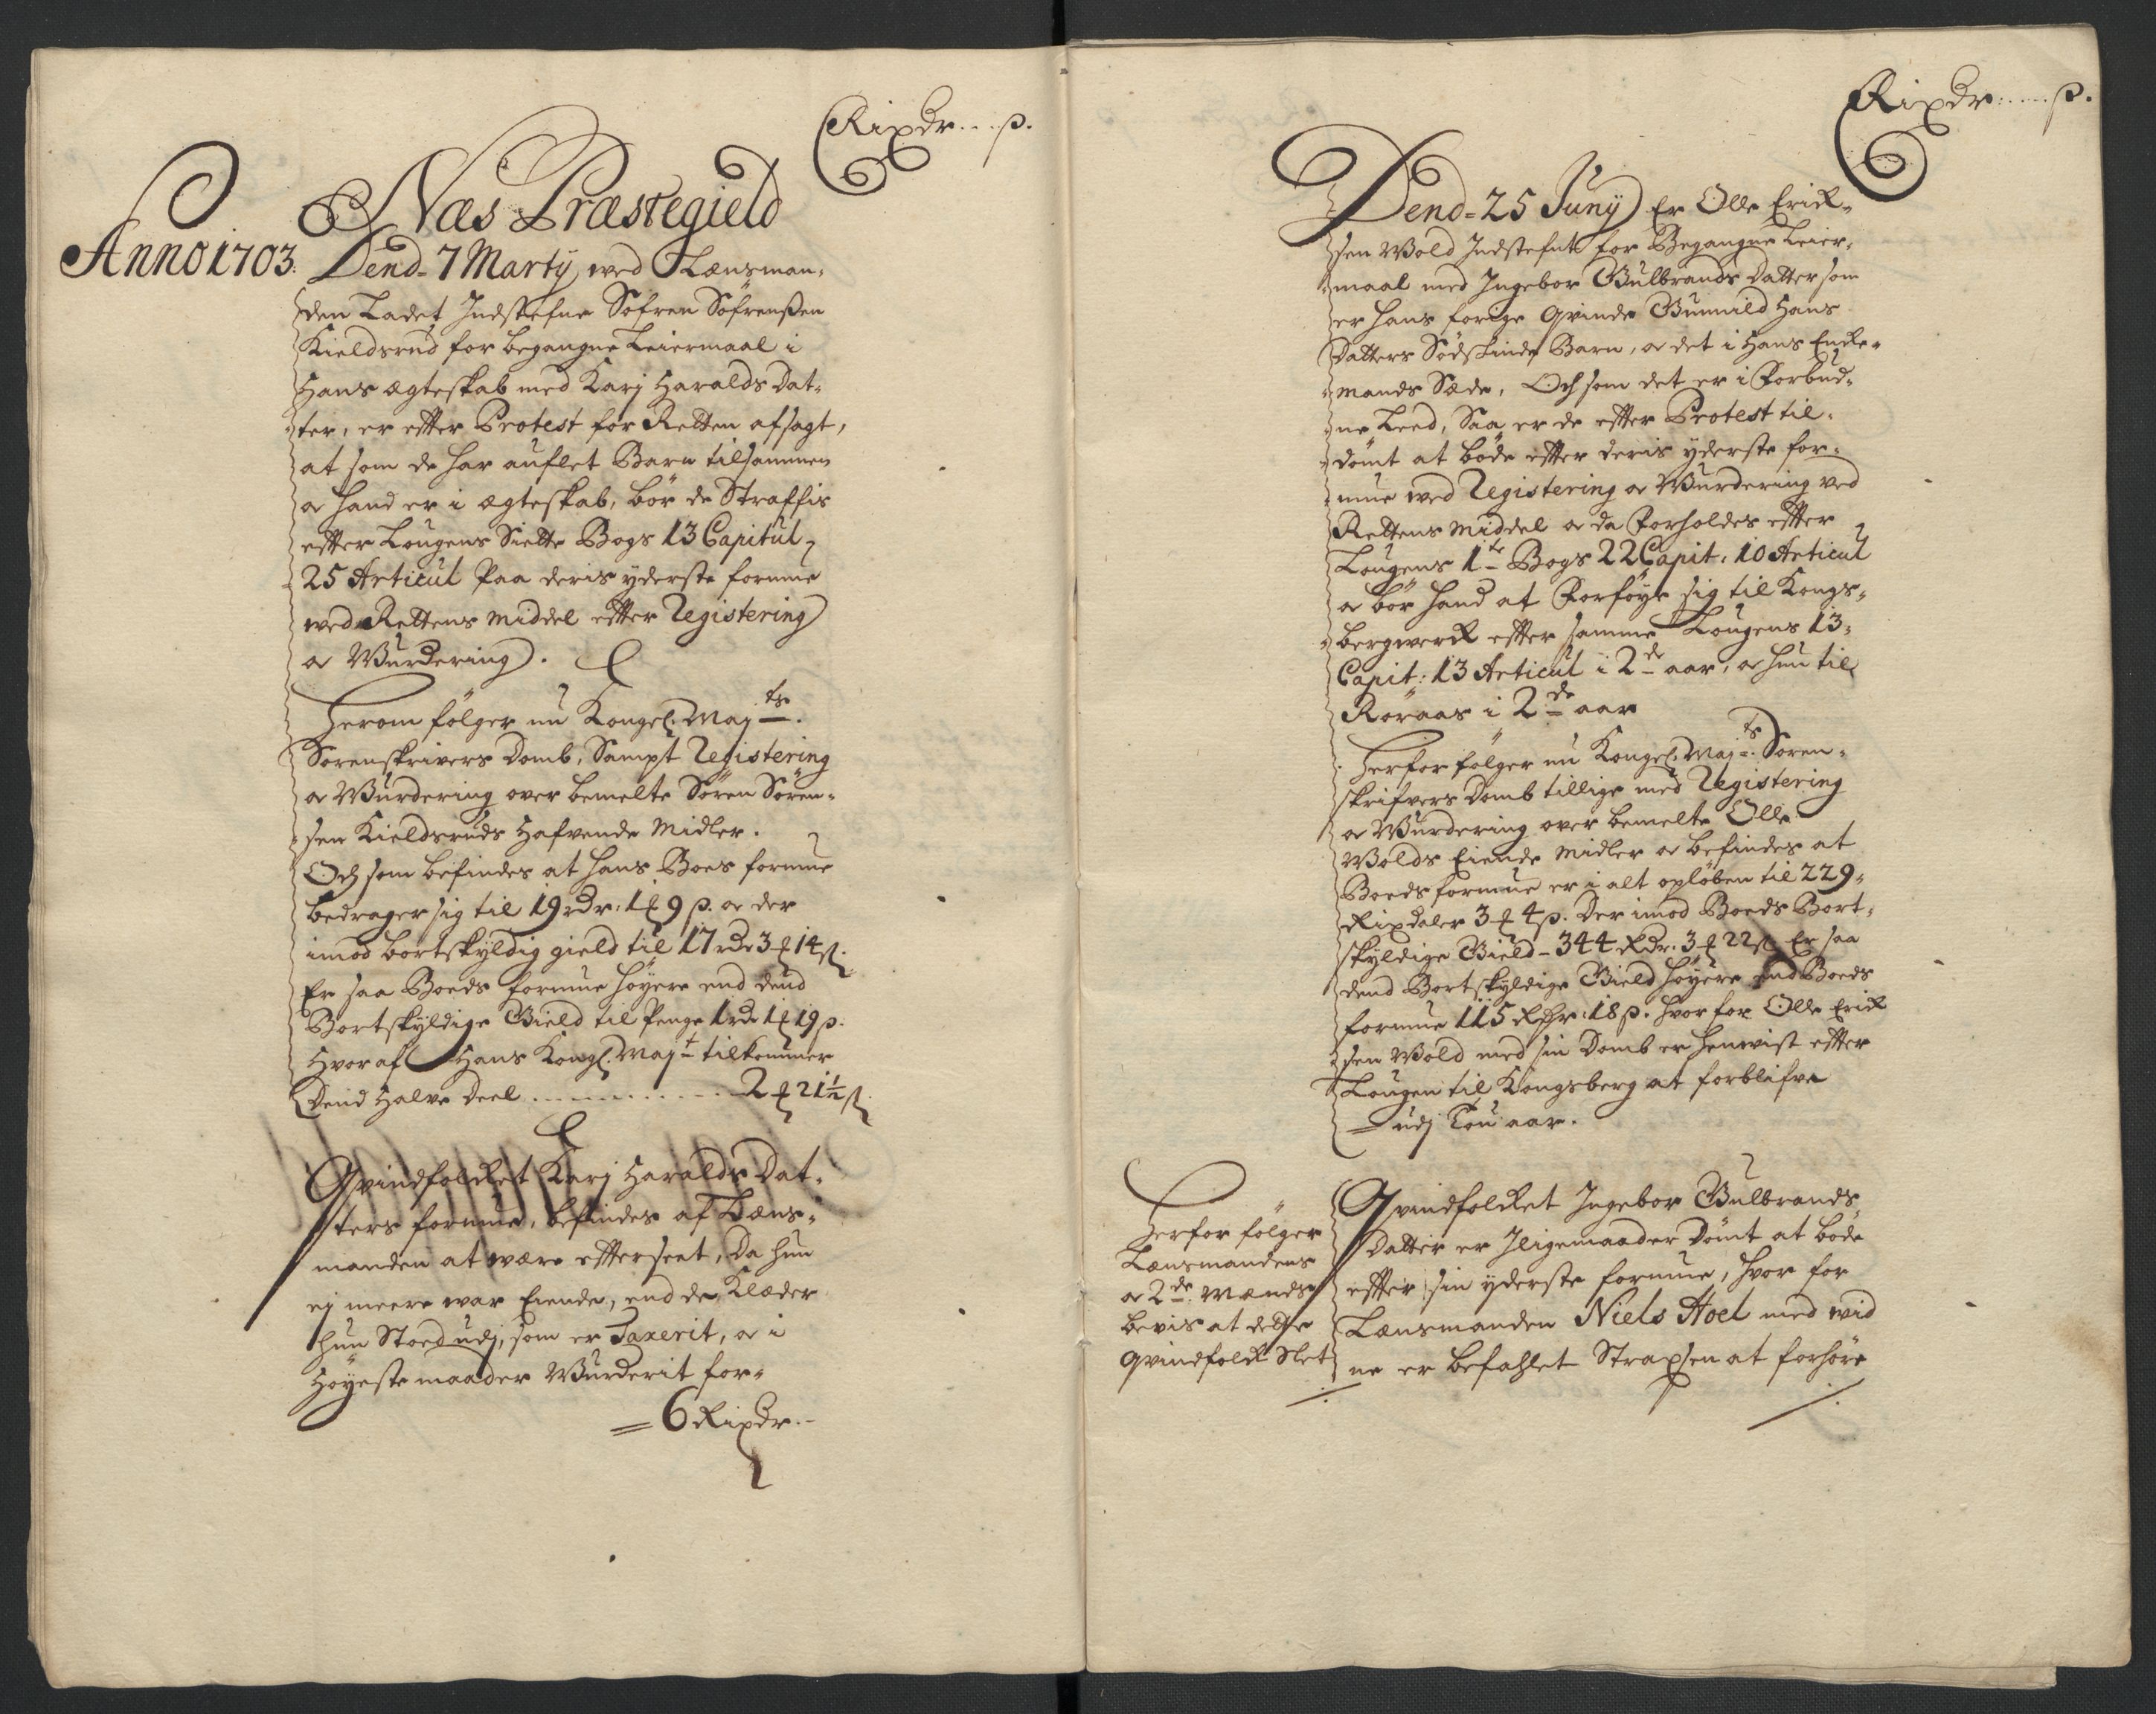 Rixdr....ß.
Næs Præstegield
Anno 1703.
Dend 7 Martij, wed Lænsman-
den Ladet Indstefne Söfren Söfrenßen
Kieldsrud for begangne Leiermaal i
Hans ægteskab med Karj Haralds Dat-
ter, er efter Protest for Retten afsagt,
at som de har auflet Barn tilsammen
oc hand er i ægteskab, bör de Straffis
efter Lougens Siette Bogs 13 Capitul
25 Articul Paa deris yderste formue
wed Rettens middel efter Registering
oc Wurdering.
Herom fölger nu Kongel: Maÿts.
Sorenskrivers Domb, Sampt Registering
oc Wurdering over bemelte Sören Sören-
sen Kieldsruds Hafvende Midler.
Och som befindes at hans Boes formue
bedrager sig til 19 rdr: 1 ₰ 9 ß. oc der
imod bortskyldig gield til 17 rdr 3 ₰ 14 ß.
Er saa Boeds formue höyere end dend
Bortskyldige Gield til Penge 1 rdr 1 ₰ 19 ß.
Hvoraf Hans Kongl. Mayt tilkommer
Dend Halve Deel ........... 2 ₰ 21½ ß.
Qvindfolcket Karj Haralds Dat-
ters formue, befindes af Læns-
manden at være efterseet, Da hun
ej meere war Eiende, end de Klæder
hun Stoed udj, som er Taxerit, oc i
Höyeste maader Wurderit for-
= 6 Rixdr.-
Rixdr.....ß.
Dend 25 Junÿ Er Olle Erick-
sen Wold Indstefnt for Begangne Leier-
maal med Ingebor Gulbrands Datter som
er hans forige Qvinde Gunnild Hans
Datters Södskinde Barn, oc det i Hans Encke-
mands Sæde, Och som det er i Forbud-
ne Leed, Saa er de efter Protest til-
dömt at böde efter deris yderste for-
mue wed Registering oc Wurdering ved
Rettens middel oc da Forholdes efter
Lougens 1te Bogs 22 Capit: 10 Articul
oc bör hand at Forföye sig til Kongs-
bergwerck efter samme Lougens 13-
Capit: 13 Articul i 2de aar, oc hun til
Röraas i 2de aar
Herfor fölger nu Kongel: Mayts. Soren-
skrifvers Domb tillige med Registering
oc Wurdering over bemelte Olle
Wolds Eiende midler oc befindes at
Boeds formue er i alt oplöben til 229-
Rixdaler 3 ₰ 4 ß. Der imod Boeds Bort-
skyldige Gield - 344 Rdr. 3 ₰ 22 ß Er saa
dend Bortskyldige Gield höyere end Boeds
formue 115 Rdr: 18 ß. Hvorfor Olle Erick
sen Wold med sin Domb er henvist efter
Lougen til Kongsberg at forblifve
udj Tou aar.
Herfor fölger
Lænsmandens
oc 2de mænds
bevis at dette
Qvindfolck Slet
Qvindfolcket Ingebor Gulbrands
Datter er Iligemaader Dömt at böde
efter sin yderste formue, Hvor for
Lænsmanden Niels Hoel med vid
ne er befahlet Strax at forhöre